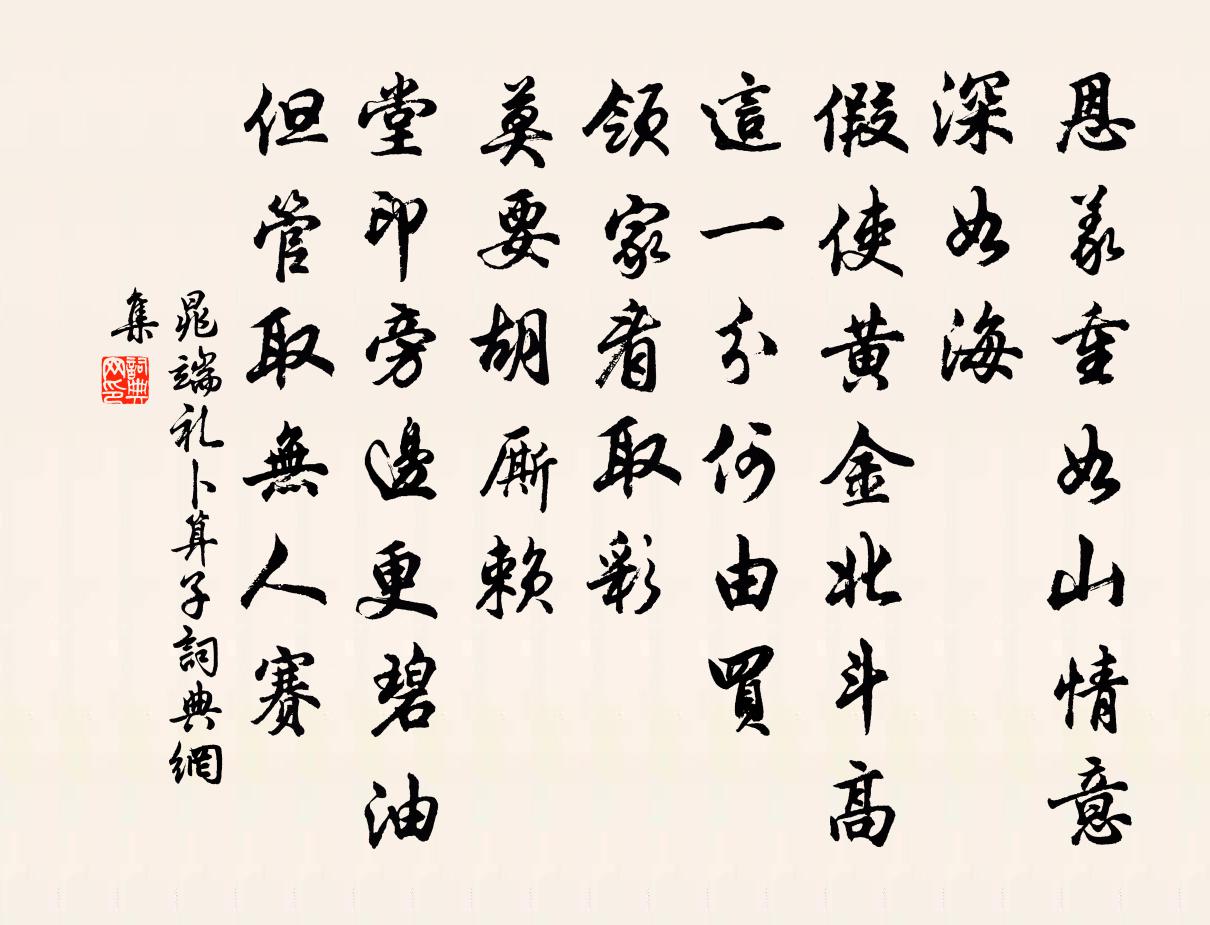 恩義重如山情意
深如海
假使黃金北斗高
這一分何由買
領家看取彩
莫要胡廝賴
堂印旁邊更碧油
但管取無人賽
晁端礼卜算子詞典網
集
詞典网印